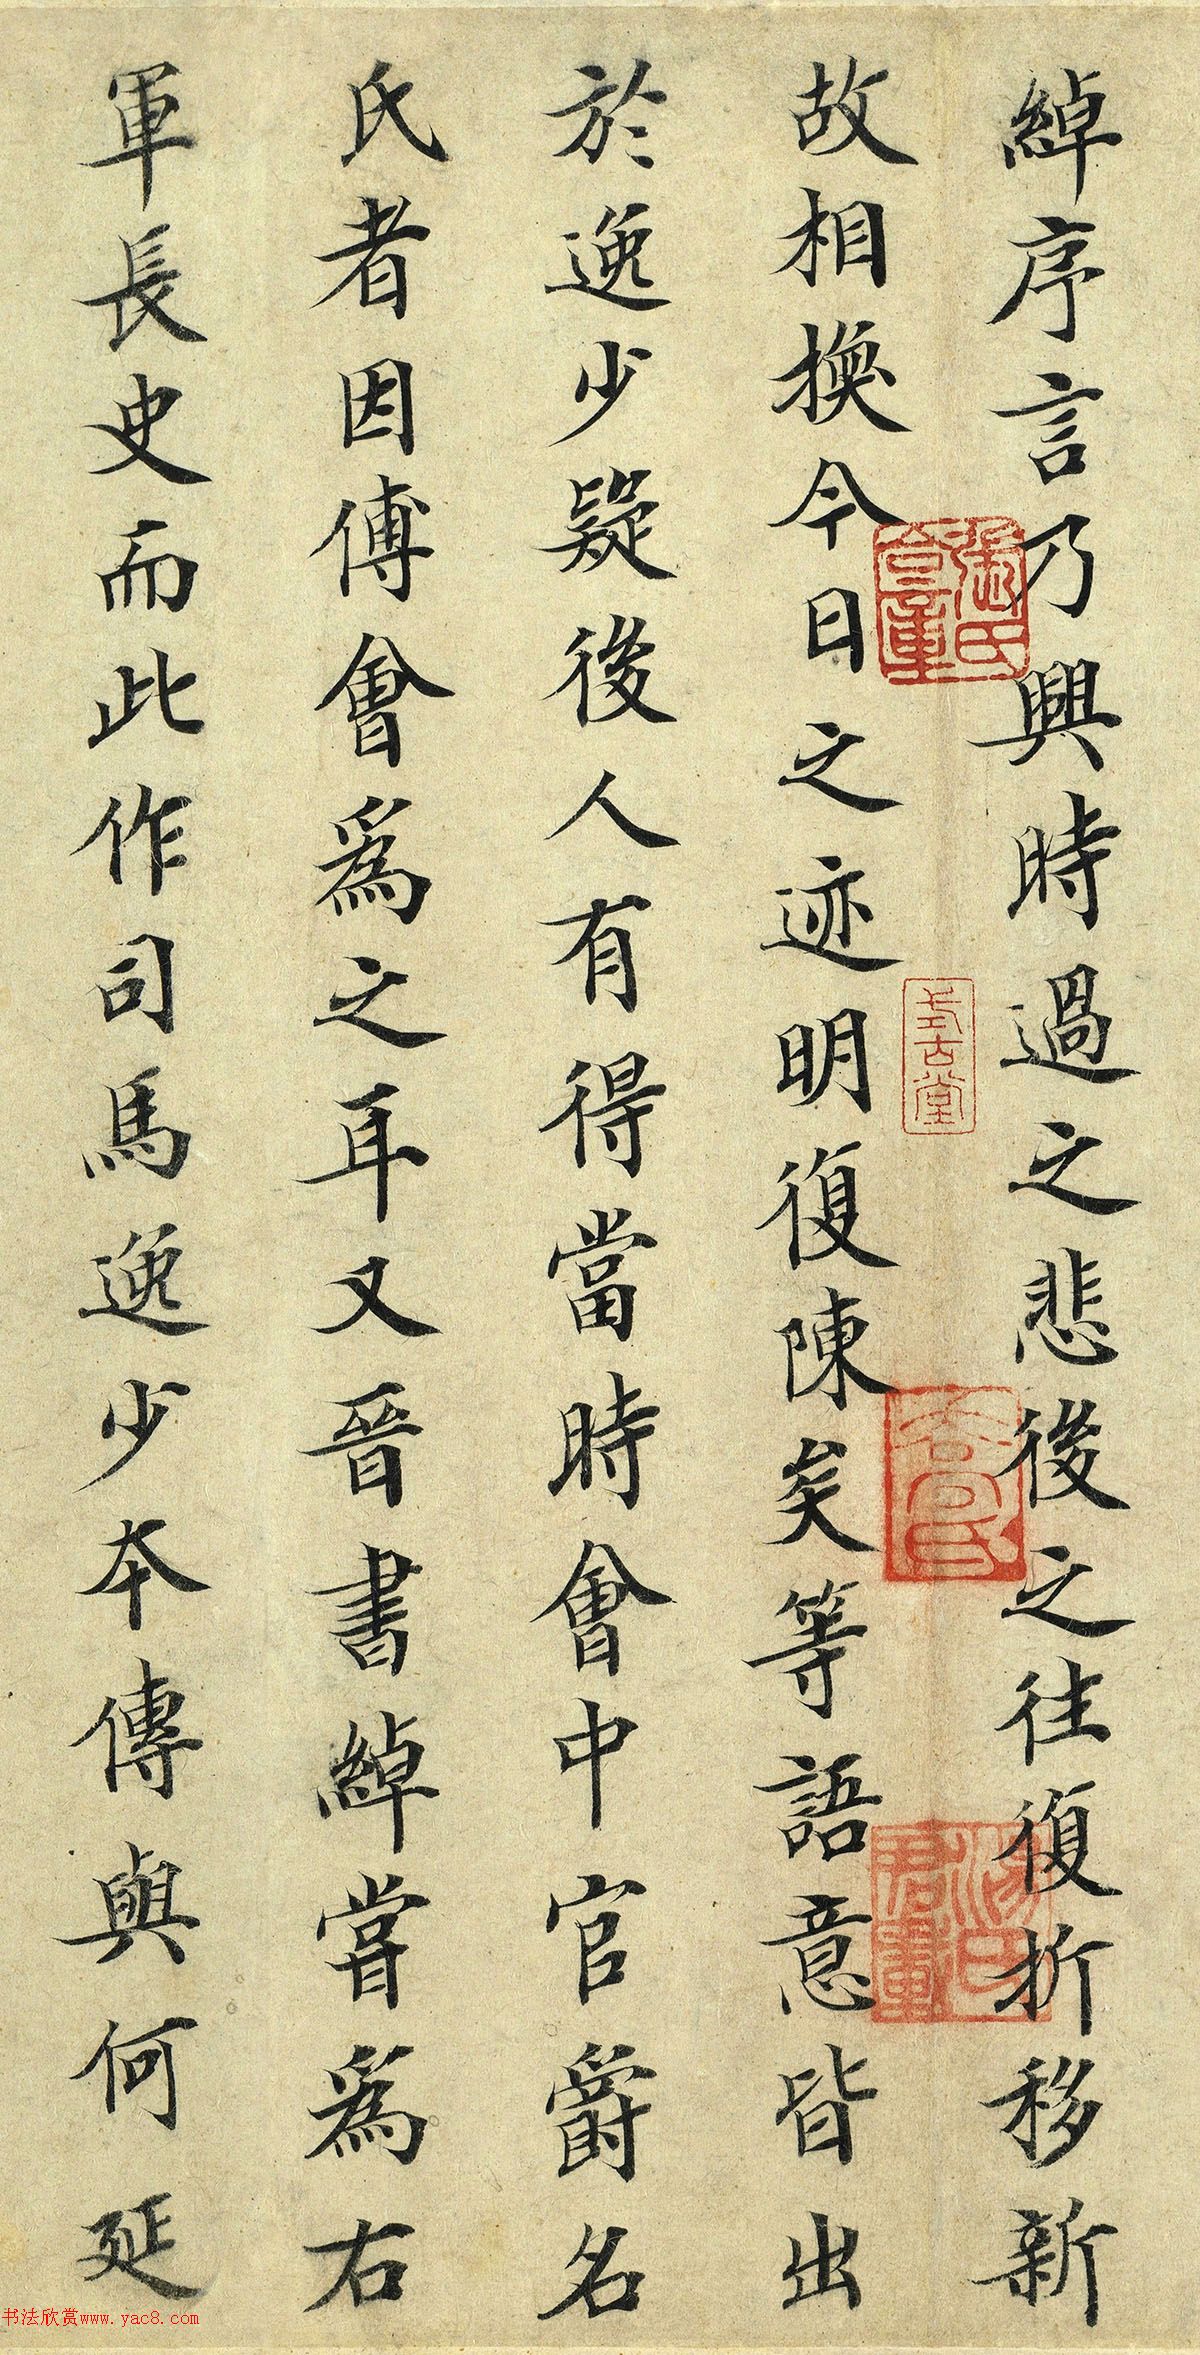 綽序言乃興時過之悲後之往復折移新
故相換今日之迹明復陳矣等語意皆出
於逸少疑後人有得當時會中官爵名
氏者因傅會為之耳又晉書綽嘗為右
軍長史而此作司馬逸少本傳與何延
式古堂
書法欣赏www.yac8.com